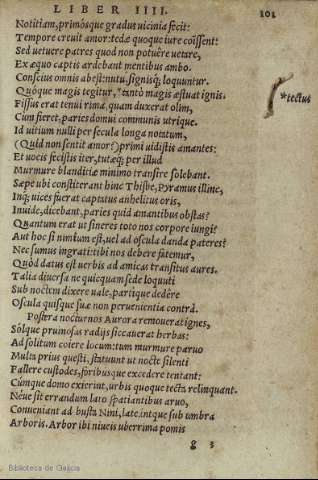 LIBER IIII. 101
Notitiam, primósque gradus uicinia fecit:
Tempore creuit amor: tedæ quoque iure coïssent:
Sed uetuere patres quod non potuêre uetare,
Ex æquo captis ardebant mentibus ambo.
Conscius omnis abest: nutu, signisq; loquuntur.
Quóque magis tegitur, *tantò magis æstuat ignis.
*tectus
Fissus erat tenui rima, quam duxerat olim,
Cum fieret, paries domui communis utrique.
Id uitium nulli per secula longa notatum,
(Quid non sentit amor?) primi uidistis amantes:
Et uocis fecistis iter, tutæq; per illud
Murmure blanditiæ minimo transire solebant.
Sæpe ubi constiterant hinc Thisbe, Pyramus illinc,
Inq; uices fuerat captatus anhelitus oris,
Inuide, dicebant, paries quid amantibus obstas?
Quantum erat ut sineres toto nos corpore iungi?
Aut hoc si nimium est, uel ad oscula danda pateres?
Nec sumus ingrati: tibi nos debere fatemur,
Quòd datus est uerbis ad amicas transitus aures.
Talia diuersa nequicquam sede loquuti
Sub noctem dixere uale, partique dedêre
Oscula quisque suæ non peruenientia contrà.
Postera nocturnos Aurora remouerat ignes,
Sólque pruinosas radijs siccauerat herbas:
Ad solitum coiere locum: tum murmure paruo
Multa prius questi, statuunt ut nocte silenti
Fallere custodes, foribusque excedere tentent:
Cúmque domo exierint, urbis quoque tecta relinquant.
Néue sit errandum lato spatiantibus aruo,
Conueniant ad busta Nini, lateántque sub umbra
Arboris. Arbor ibi niueis uberrima pomis
g 3
Biblioteca de Galicia